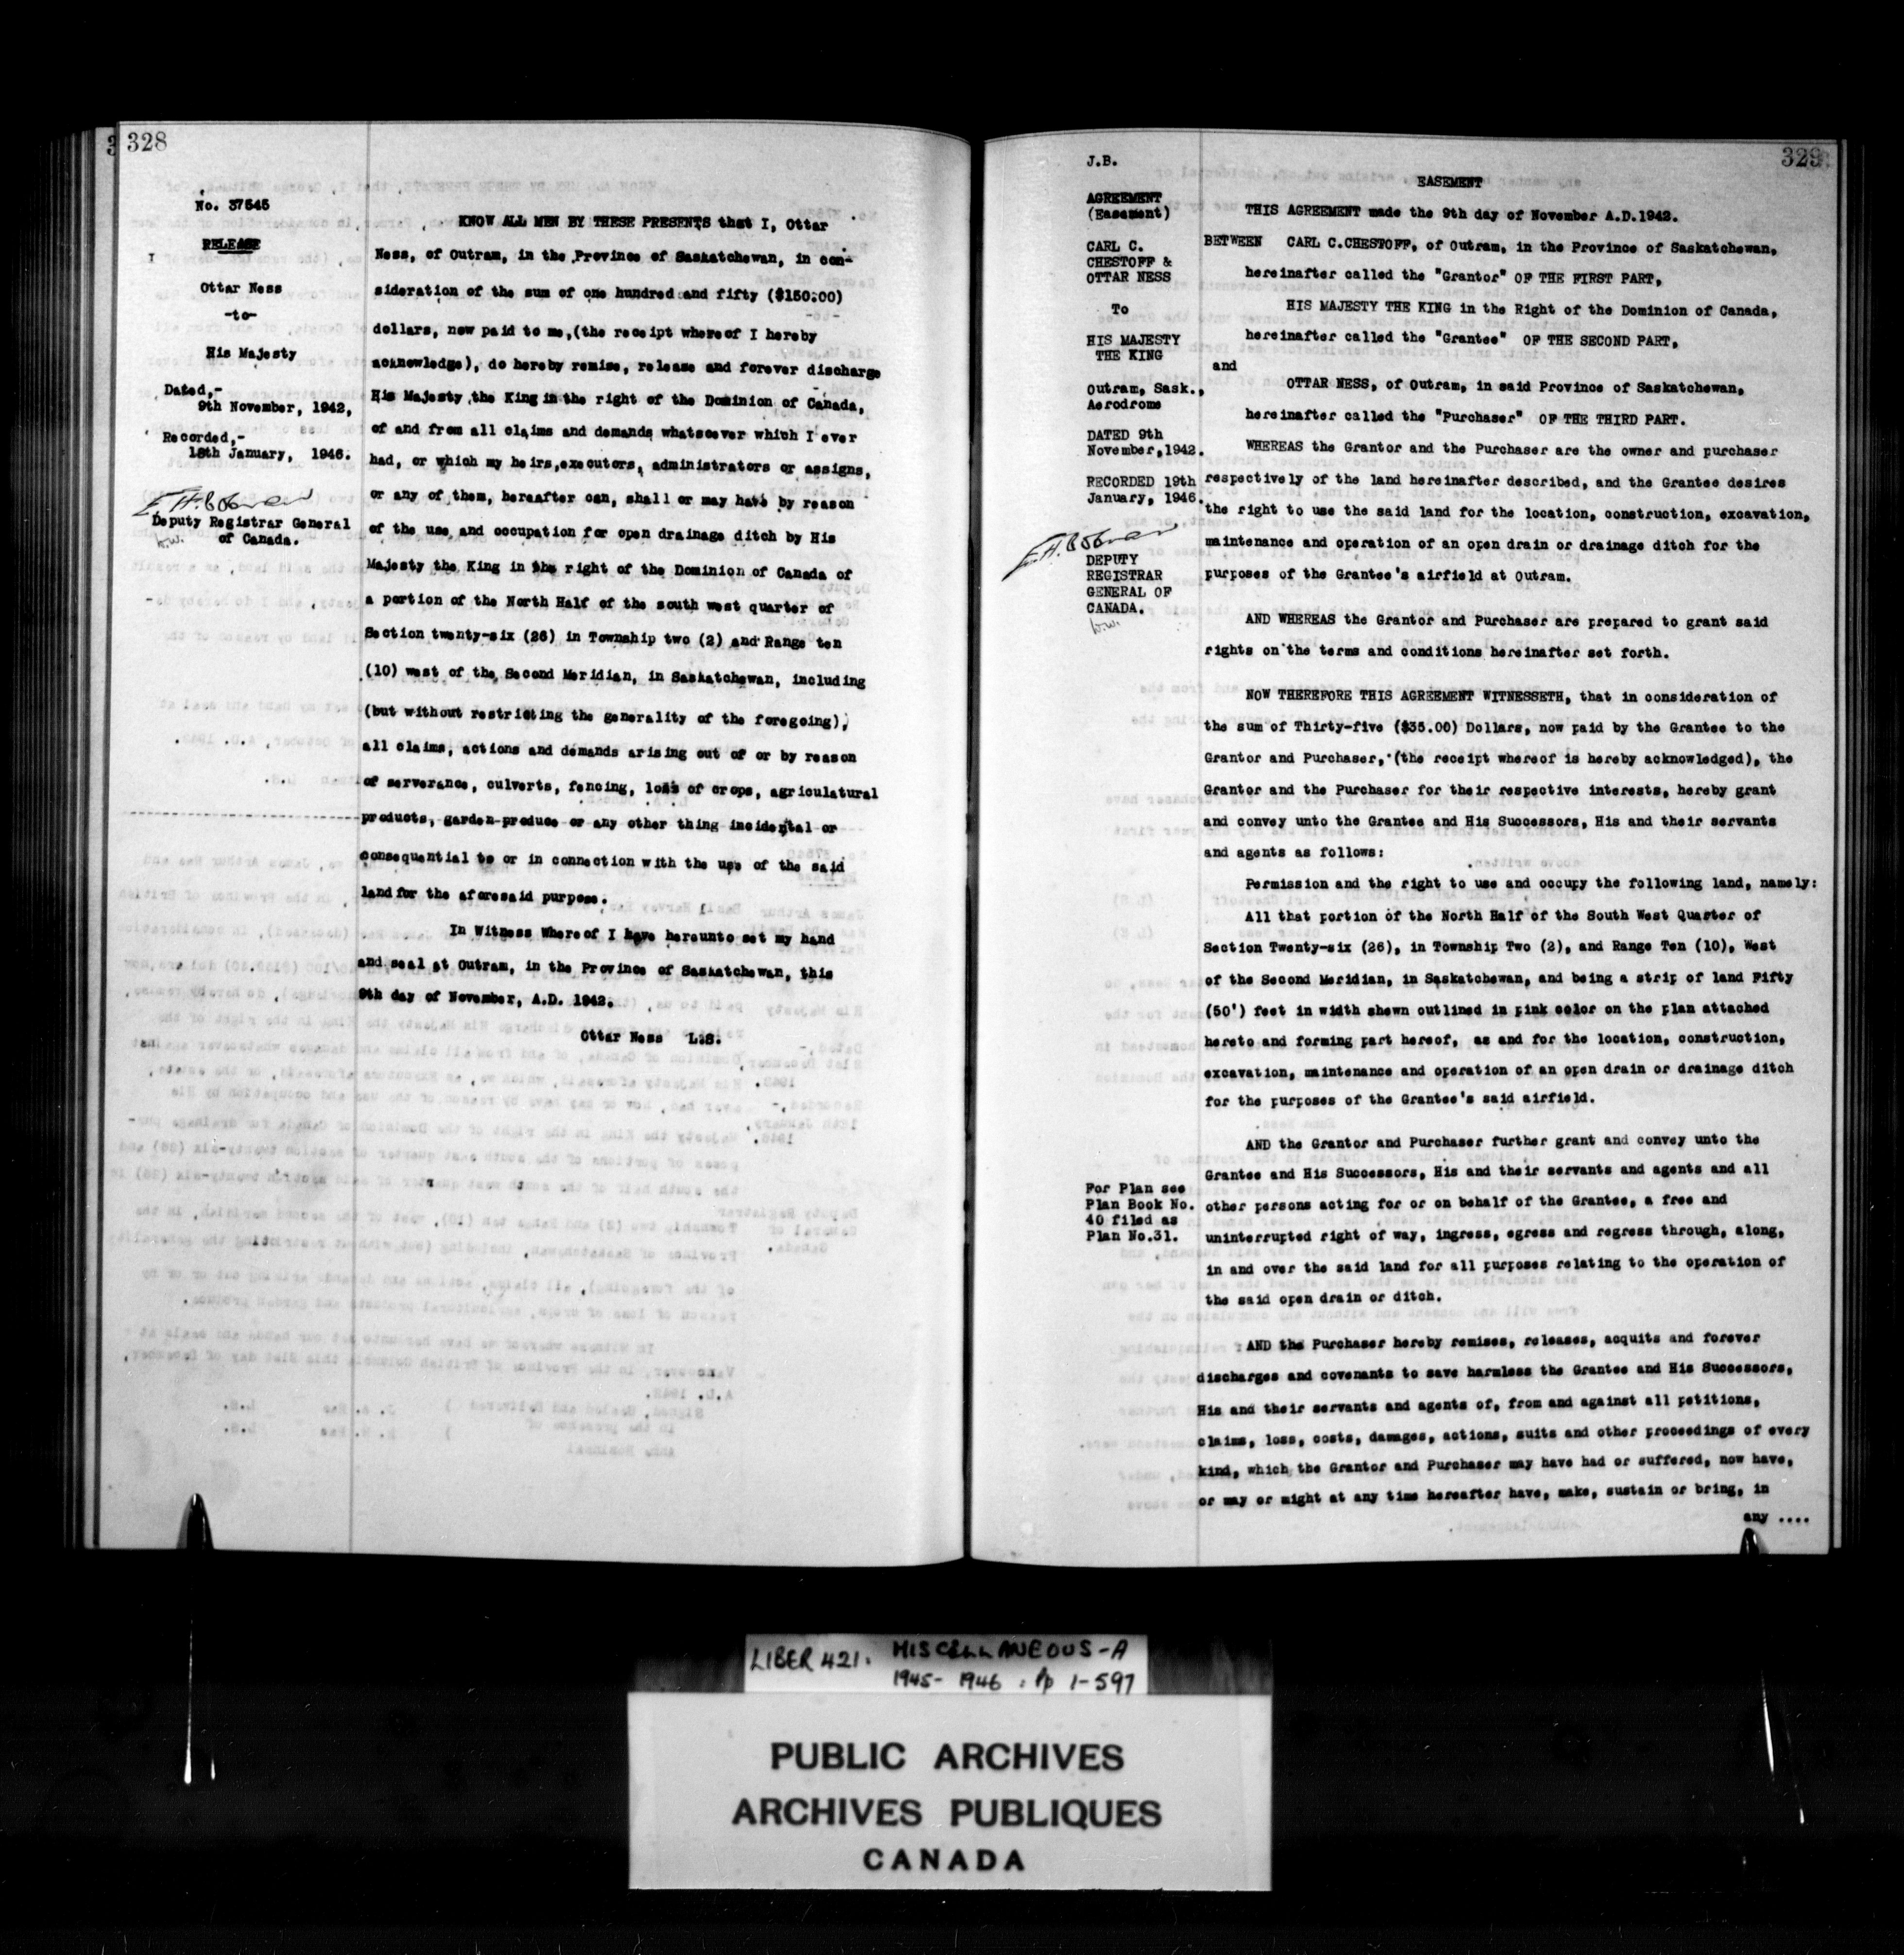 328
No. 37545
RELEASE
Ottar Ness
-to-
His Majesty
Dated,-
9th November, 1942,
Recorded,-
18th January, 1946.
Deputy Registrar General
of Canada.
KNOW ALL MEN BY THESE PRESENTS that I, Ottar
Ness, of Outram, in the Province of Saskatchewan, in con-
sideration of the sum of one hundred and fifty ($150.00)
dollars, now paid to me,(the receipt whereof I hereby
acknowledge), do hereby remise, release and forever discharge
His Majesty the King in the right of the Dominion of Canada,
of and from all claims and demands whatsoever which I ever
had, or which my heirs,executors, administrators or assigns,
or any of them, hereafter can, shall or may have by reason
of the use and occupation for open drainage ditch by His
Majesty the King in the right of the Dominion of Canada of
a portion of the North Half of the south west quarter of
Section twenty-six (26) in Township two (2) and Range ten
(10) west of the Second Meridian, in Saskatchewan, including
(but without restricting the generality of the foregoing),
all claims, actions and demands arising out of or by reason
of serverance, culverts, fencing, loss of crops, agriculatural
products, garden-produce or any other thing incidental or
consequential to or in connection with the use of the said
land for the aforesaid purpose.
In Witness Whereof I have hereunto set my hand
and seal at Outram, in the Province of Saskatchewan, this
9th day of November, A.D. 1942.
Ottar Ness L.S.
329
J.B.
AGREEMENT
(Easement)
CARL C.
CHESTOFF &
OTTAR NESS
To
HIS MAJESTY
THE KING
Outram, Sask.,
Aerodrome
DATED 9th
November,1942.
RECORDED 19th
January, 1946.
DEPUTY
REGISTRAR
GENERAL OF
CANADA.
For Plan see
Plan Book No.
40 filed as
Plan No.31.
EASEMENT
THIS AGREEMENT made the 9th day of November A.D.1942.
BETWEEN CARL C.CHESTOFF, of Outram, in the Province of Saskatchewan,
hereinafter called the "Grantor" OF THE FIRST PART,
HIS MAJESTY THE KING in the Right of the Dominion of Canada,
hereinafter called the "Grantee" OF THE SECOND PART,
and
OTTAR NESS, of Outram, in said Province of Saskatchewan,
hereinafter called the "Purchaser" OF THE THIRD PART.
WHEREAS the Grantor and the Purchaser are the owner and purchaser
respectively of the land hereinafter described, and the Grantee desires
the right to use the said land for the location, construction, excavation,
maintenance and operation of an open drain or drainage ditch for the
purposes of the Grantee's airfield at Outram.
AND WHEREAS the Grantor and Purchaser are prepared to grant said
rights on the terms and conditions hereinafter set forth.
NOW THEREFORE THIS AGREEMENT WITNESSETH, that in consideration of
the sum of Thirty-five ($35.00) Dollars, now paid by the Grantee to the
Grantor and Purchaser, (the receipt whereof is hereby acknowledged), the
Grantor and the Purchaser for their respective interests, hereby grant
and convey unto the Grantee and His Successors, His and their servants
and agents as follows:
Permission and the right to use and occupy the following land, namely:
All that portion of the North Half of the South West Quarter of
Section Twenty-six (26), in Township Two (2), and Range Ten (10), West
of the Second Meridian, in Saskatchewan, and being a strip of land Fifty
(50') feet in width shewn outlined in pink color on the plan attached
hereto and forming part hereof, as and for the location, construction,
excavation, maintenance and operation of an open drain or drainage ditch
for the purposes of the Grantee's said airfield.
AND the Grantor and Purchaser further grant and convey unto the
Grantee and His Successors, His and their servants and agents and all
other persons acting for or on behalf of the Grantee, a free and
uninterrupted right of way, ingress, egress and regress through, along,
in and over the said land for all purposes relating to the operation of
the said open drain or ditch.
AND the Purchaser hereby remises, releases, acquits and forever
discharges and covenants to save harmless the Grantee and His Successors,
His and their servants and agents of, from and against all petitions,
claims, loss, costs, damages, actions, suits and other proceedings of every
kind, which the Grantor and Purchaser may have had or suffered, now have,
or may or might at any time hereafter have, make, sustain or bring, in
any ....
LIBER 421. MISCELLANEOUS-A
1945-1946 : Pp 1-597
PUBLIC ARCHIVES
ARCHIVES PUBLIQUES
CANADA